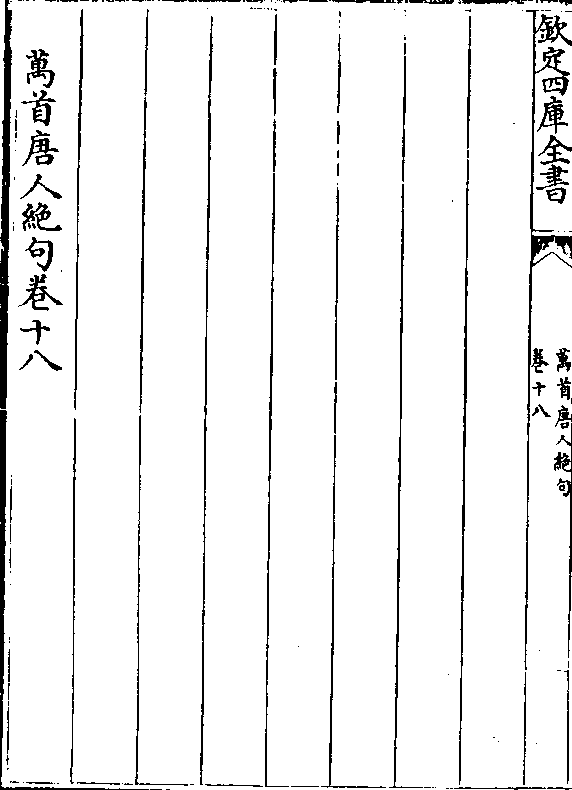 欽定四庫全書
萬首唐人絶句
卷十八
萬首唐人絶句卷十八